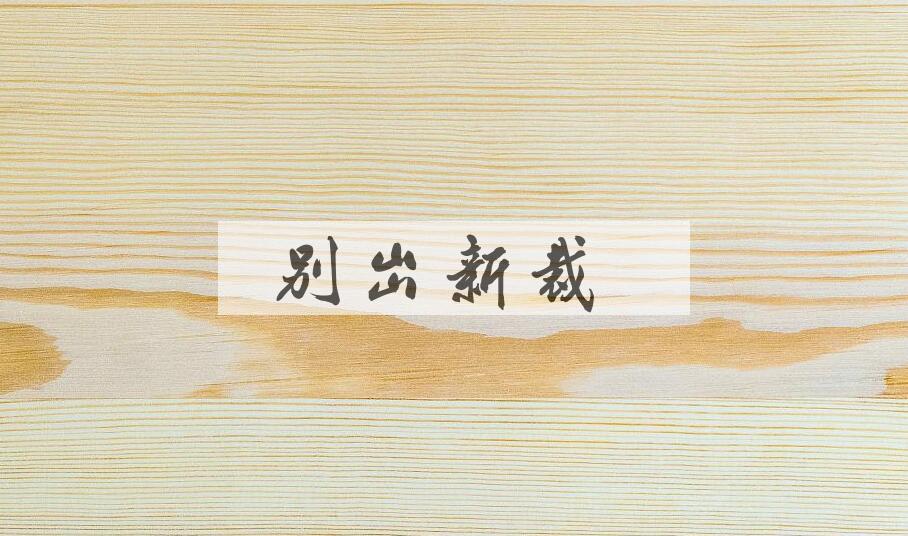 别出新裁